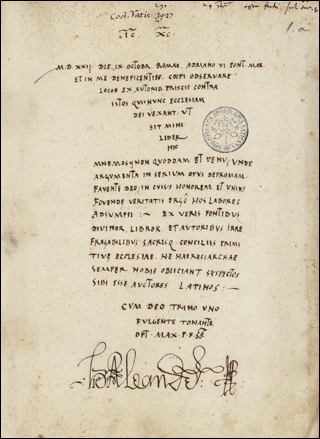 Cod. Vatic. 3927
M. D. XXII. DIE. IX. OCTOBR. ROMAE. ADRIANO VI. PONT. MAX.
ET IN ME BENEFICENTISS. COEPI OBSERVARE
LOCOS EX AUTORIB. PRISCIS CONTRA
ISTOS QUI NUNC ECCLESIAM
DEI VEXANT: UT
SIT MIHI
LIBER
HIC
MNEMOSYNON QUODDAM ET PENU, UNDE
ARGUMENTA IN SERIUM OPUS DEPROMAM.
FAVENTE DEO, IN CUIUS HONOREM ET UNIUS
FOVENDAE VERITATIS ERGO HOS LABORES
ADSUMPSI :~ EX VERIS FONTIBUS
DIVINOR. LIBROR. ET AUTORIBUS IRRE
FRAGABILIBUS SACRISQ. CONCILIIS PRIMI
TIVAE ECCLESIAE. NE HAERESIARCHAE
SEMPER NOBIS OBIICIANT SUSPECTOS
SIBI ESSE AUCTORES LATINOS :~
CUM DEO TRINO UNO
FULGENTE TONANTE
OPT. MAX.